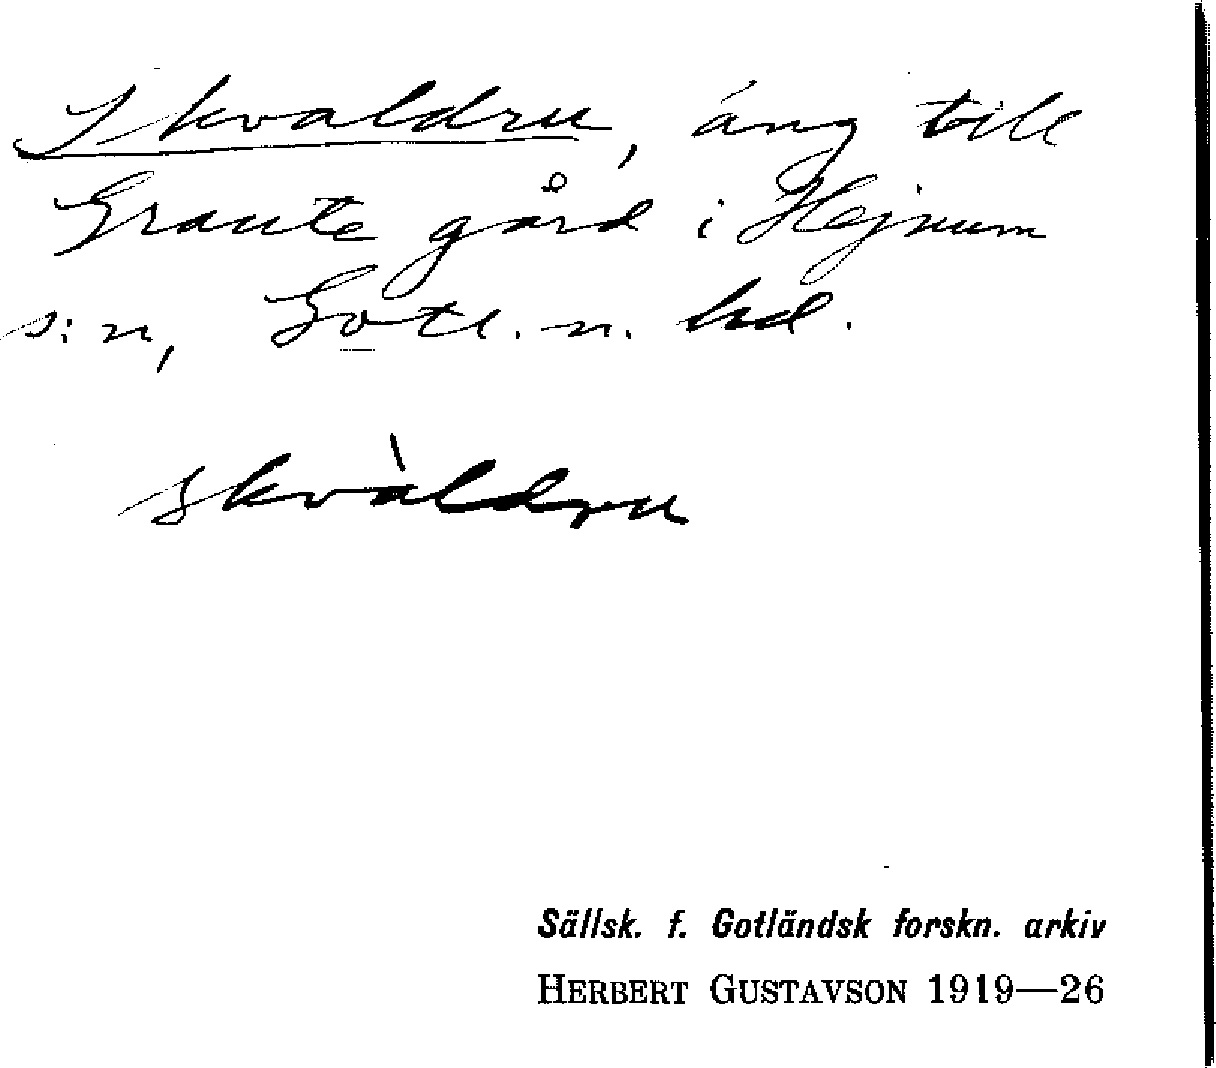 Skvaldru, äng till
Graute gård i Hejnum
s:n, Gotl. n. hd.
skvàldru
Sällsk. f. Gotländsk forskn. arkiv
HERBERT GUSTAVSON 1919—26